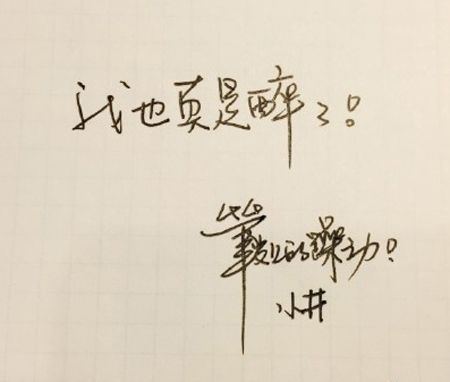 我也真是醉了!
筆上的躁动!
小井